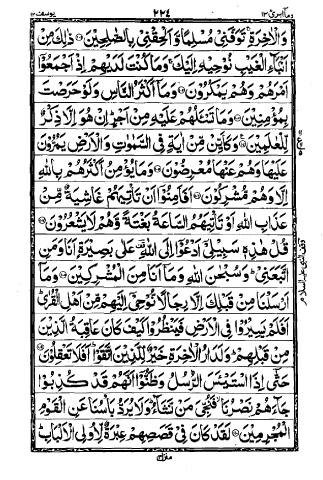 وما ابرئ ١٣ ٢٢٤ يوسف ١٢
وَالْاٰخِرَةِ ۚ تَوَفَّنِیْ مُسْلِمًا وَّاَلْحِقْنِیْ بِالصّٰلِحِیْنَ ۝ ذٰلِكَ مِنْ
اَنْۢبَآءِ الْغَیْبِ نُوْحِیْهِ اِلَیْكَ ۚ وَمَا كُنْتَ لَدَیْهِمْ اِذْ اَجْمَعُوْۤا
اَمْرَهُمْ وَهُمْ یَمْكُرُوْنَ ۝ وَمَاۤ اَكْثَرُ النَّاسِ وَلَوْ حَرَصْتَ
بِمُؤْمِنِیْنَ ۝ وَمَا تَسْـَٔلُهُمْ عَلَیْهِ مِنْ اَجْرٍ ؕ اِنْ هُوَ اِلَّا ذِكْرٌ
لِّلْعٰلَمِیْنَ ۝ وَكَاَیِّنْ مِّنْ اٰیَةٍ فِی السَّمٰوٰتِ وَالْاَرْضِ یَمُرُّوْنَ
عَلَیْهَا وَهُمْ عَنْهَا مُعْرِضُوْنَ ۝ وَمَا یُؤْمِنُ اَكْثَرُهُمْ بِاللّٰهِ
اِلَّا وَهُمْ مُّشْرِكُوْنَ ۝ اَفَاَمِنُوْۤا اَنْ تَاْتِیَهُمْ غَاشِیَةٌ مِّنْ
عَذَابِ اللّٰهِ اَوْ تَاْتِیَهُمُ السَّاعَةُ بَغْتَةً وَّهُمْ لَا یَشْعُرُوْنَ ۝
قُلْ هٰذِهٖ سَبِیْلِیْۤ اَدْعُوْۤا اِلَی اللّٰهِ ؔ عَلٰی بَصِیْرَةٍ اَنَا وَمَنِ
اتَّبَعَنِیْ ؕ وَسُبْحٰنَ اللّٰهِ وَمَاۤ اَنَا مِنَ الْمُشْرِكِیْنَ ۝ وَمَاۤ
اَرْسَلْنَا مِنْ قَبْلِكَ اِلَّا رِجَالًا نُّوْحِیْۤ اِلَیْهِمْ مِّنْ اَهْلِ الْقُرٰی ؕ
اَفَلَمْ یَسِیْرُوْا فِی الْاَرْضِ فَیَنْظُرُوْا كَیْفَ كَانَ عَاقِبَةُ الَّذِیْنَ
مِنْ قَبْلِهِمْ ؕ وَلَدَارُ الْاٰخِرَةِ خَیْرٌ لِّلَّذِیْنَ اتَّقَوْا ؕ اَفَلَا تَعْقِلُوْنَ ۝
حَتّٰۤی اِذَا اسْتَیْـَٔسَ الرُّسُلُ وَظَنُّوْۤا اَنَّهُمْ قَدْ كُذِبُوْا
جَآءَهُمْ نَصْرُنَا ۙ فَنُجِّیَ مَنْ نَّشَآءُ ؕ وَلَا یُرَدُّ بَاْسُنَا عَنِ الْقَوْمِ
الْمُجْرِمِیْنَ ۝ لَقَدْ كَانَ فِیْ قَصَصِهِمْ عِبْرَةٌ لِّاُولِی الْاَلْبَابِ ؕ
منزل ٣